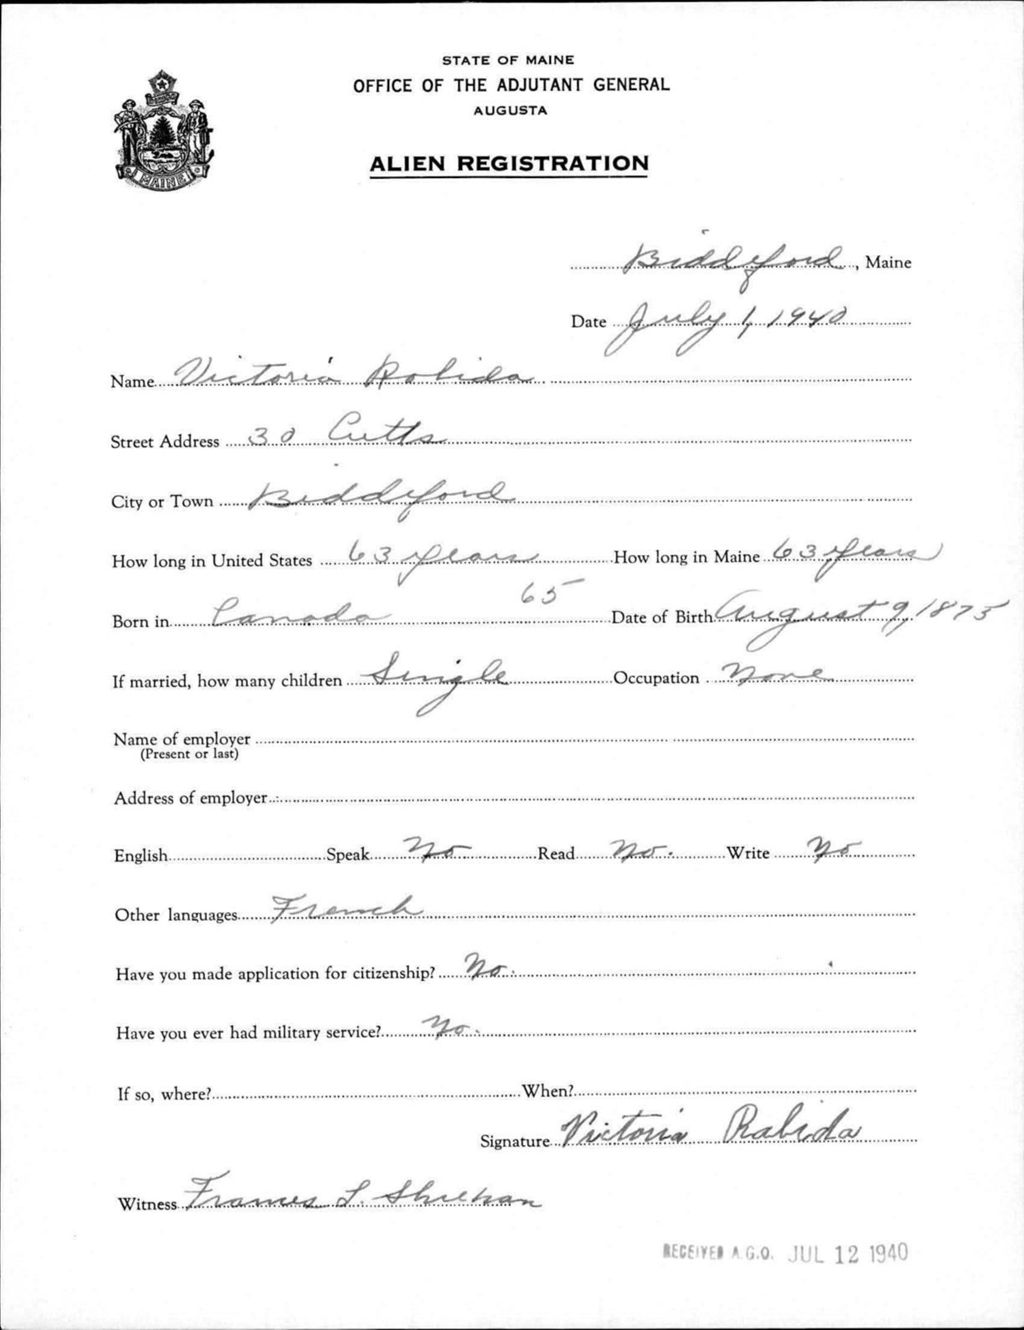 STATE OF MAINE
OFFICE OF THE ADJUTANT GENERAL
AUGUSTA
ALIEN REGISTRATION
MAINE
Biddeford, Maine
Date July 1, 1940
Name Victoria Robida
Street Address 30 Cutts
City or Town Biddeford
How long in United States 63 years How long in Maine 63 years
65
Born in Canada Date of Birth August 9, 1875
If married, how many children Single Occupation None
Name of employer
(Present or last)
Address of employer
English Speak No Read No. Write No
Other languages French
Have you made application for citizenship? No.
Have you ever had military service? No.
If so, where? When?
Signature Victoria Rabida
Witness Frances L. Sheehan
RECEIVED A.G.O. JUL 12 1940